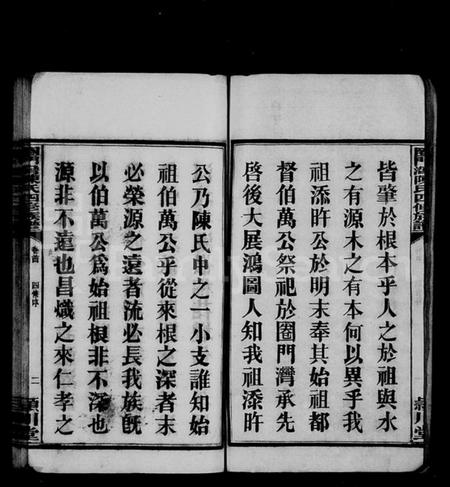 皆肇於根本乎人之於祖與水
之有源木之有本何以異乎我
祖添昨公於明末奉其始祖都
督伯萬公祭祀於圈門灣承先
啓後大展鴻圖人知我祖添昨
公乃陳氏中之一小支誰知始
祖伯萬公乎從來根之深者末
必榮源之遠者流必長我族旣
以伯萬公爲始祖根非不深也
源非不遠也昌熾之來仁孝之
卷首
四修序
二
潁川堂